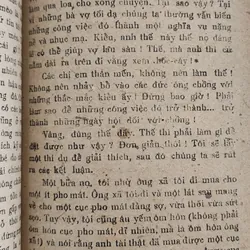 ql, cho xong chuyện. Tại sao vậy? Tại
những bà vợ tôi dạ chúng ta thường vẫn biến
những công việc đó thành một nghĩa vụ nặng
và nhục mạ. Kiều, anh thế này thế nọ đáng
có thể để giúp vợ lúu sau! Thế, mà anh thì
các đám ra trên đi vắng xem
Các chị em thân mến, không nên làm thế!
Không nên nhảy bổ vào các đức ông chồng với
những thắc mắc ấy! Đừng bao giờ! Phải
sao để những công việc đó trở thành... trở
thành những ngày hội đối với chồng!
Vâng, đúng thế đấy. Thế thì phải làm gì để
đạt được như vậy? Đơn giản thôi! Tôi sẽ lấy
một thí dụ để giải thích, sau đó chúng ta sẽ rút
ra các kết luận.
Một bữa nọ, tôi nhờ ông xã đi mua cho
một ít pho mát. Ông xã tôi đi và một lát sau mang
về cho một cục pho mát đáng sợ, vừa thối vừa
sứt sẹo. Tuy vậy, tôi cũng âu yếm ôm hôn (phải
ôm hôn cục pho mát, mà ôm hôn ông
ấy) và nói rằng anh tài thật đã mua được một